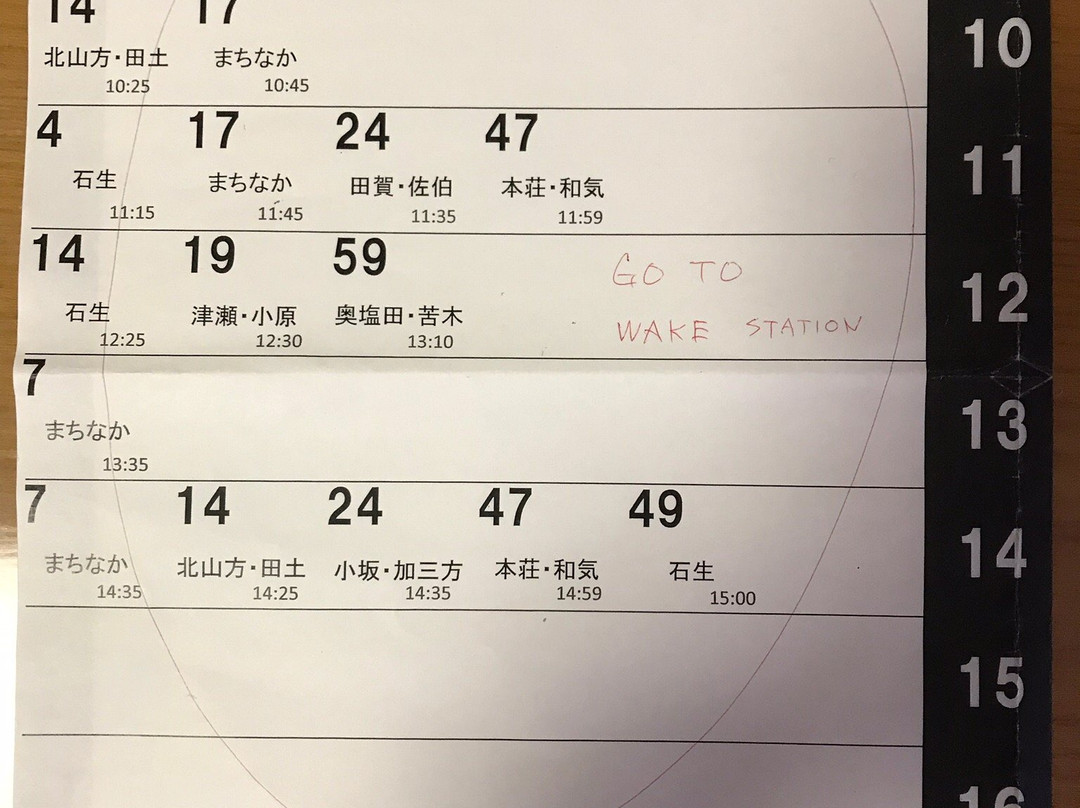 14 17 10
北山方・田土 まちなか
10:25 10:45
4 17 24 47 11
石生 まちなか 田賀・佐伯 本荘・和気
11:15 11:45 11:35 11:59
14 19 59 12
石生 津瀬・小原 奥塩田・苦木
12:25 12:30 13:10
GO TO
WAKE STATION
7 13
まちなか
13:35
7 14 24 47 49 14
まちなか 北山方・田土 小坂・加三方 本荘・和気 石生
14:35 14:25 14:35 14:59 15:00
15
16